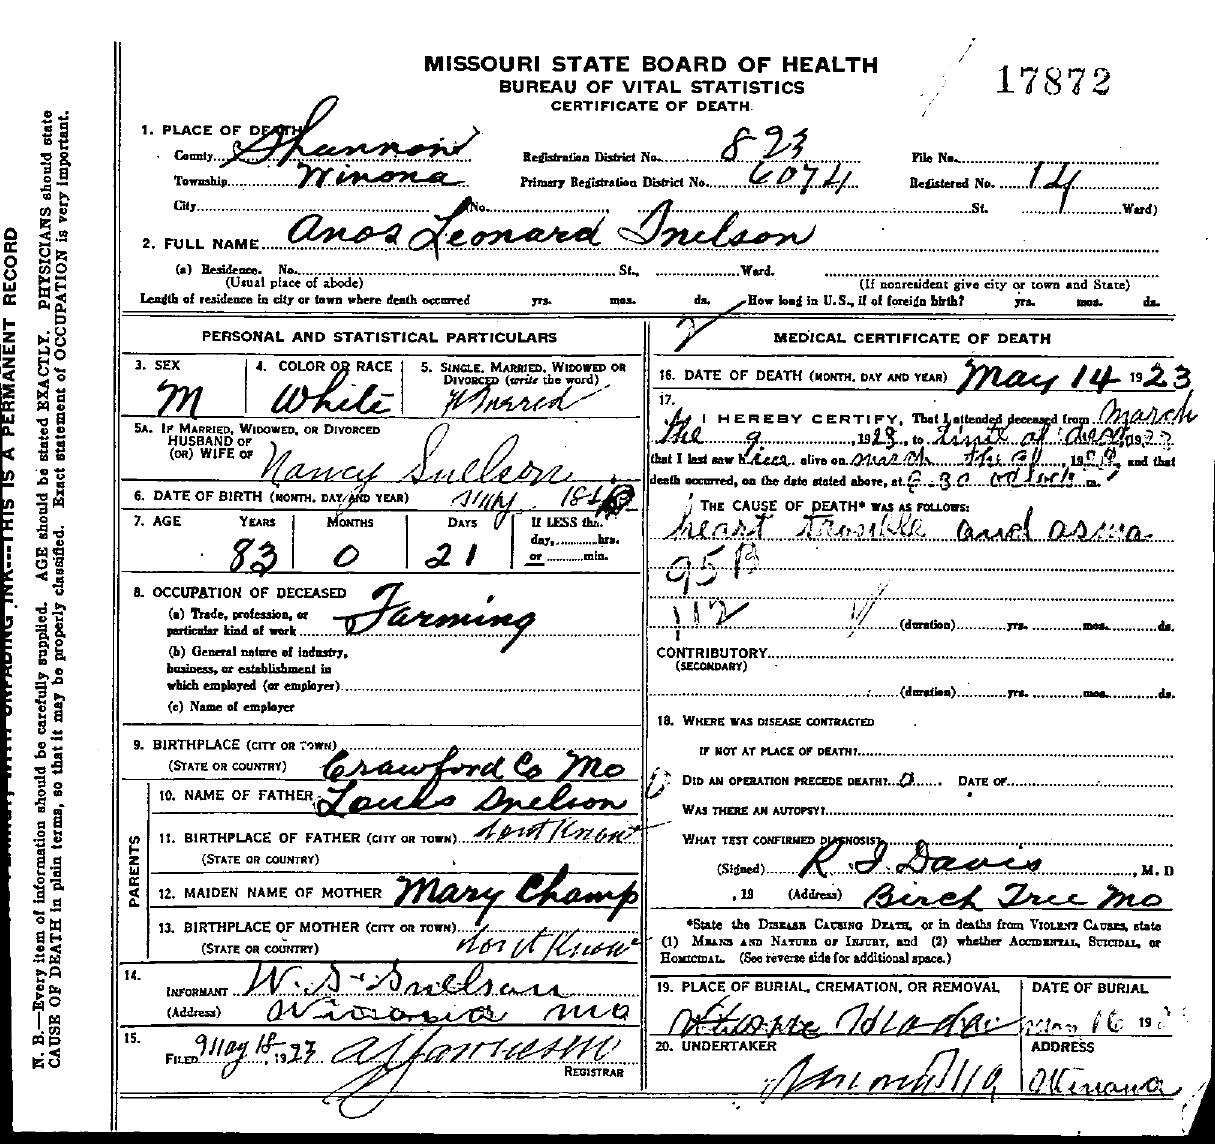 MISSOURI STATE BOARD OF HEALTH
BUREAU OF VITAL STATISTICS
CERTIFICATE OF DEATH
17872
1. PLACE OF DEATH
County Shannon Registration District No. 893 File No.
Township Winona Primary Registration District No. 6074 Registered No. 14
City (No. St. Ward)
2. FULL NAME Anos Leonard Snelson
(a) Residence. No. St., Ward.
(Usual place of abode) (If nonresident give city or town and State)
Length of residence in city or town where death occurred yrs. mos. ds. How long in U.S., if of foreign birth? yrs. mos. ds.
PERSONAL AND STATISTICAL PARTICULARS
3. SEX 4. COLOR OR RACE 5. SINGLE, MARRIED, WIDOWED OR
DIVORCED (write the word)
M White Married
5A. IF MARRIED, WIDOWED, OR DIVORCED
HUSBAND OF
(OR) WIFE OF Nancy Snelson
6. DATE OF BIRTH (MONTH, DAY AND YEAR)
7. AGE YEARS MONTHS DAYS If LESS than
day, hrs.
or min.
83 0 21
8. OCCUPATION OF DECEASED
(a) Trade, profession, or
particular kind of work Farming
(b) General nature of industry,
business, or establishment in
which employed (or employer)
(c) Name of employer
9. BIRTHPLACE (CITY OR TOWN)
(STATE OR COUNTRY) Crawford Co Mo
PARENTS
10. NAME OF FATHER Louis Snelson
11. BIRTHPLACE OF FATHER (CITY OR TOWN) dont Know
(STATE OR COUNTRY)
12. MAIDEN NAME OF MOTHER Mary Champ
13. BIRTHPLACE OF MOTHER (CITY OR TOWN)
(STATE OR COUNTRY) dont Know
14.
INFORMANT W. S. Snelson
(Address) Winona Mo
15.
FILED May 18, 1923
REGISTRAR
MEDICAL CERTIFICATE OF DEATH
16. DATE OF DEATH (MONTH, DAY AND YEAR) May 14 1923
17.
I HEREBY CERTIFY, That I attended deceased from March
the 9, 1923, to time of death 1923
that I last saw him alive on March the, 19, and that
death occurred, on the date stated above, at 6-30 oclock m.
THE CAUSE OF DEATH* WAS AS FOLLOWS:
heart trouble and asma
95 B
112
(duration) yrs. mos. ds.
CONTRIBUTORY
(SECONDARY)
(duration) yrs. mos. ds.
18. WHERE WAS DISEASE CONTRACTED
IF NOT AT PLACE OF DEATH?
DID AN OPERATION PRECEDE DEATH? 0 DATE OF
WAS THERE AN AUTOPSY?
WHAT TEST CONFIRMED DIAGNOSIS?
(Signed) R. I. Davis, M. D
, 19 (Address) Birch Tree Mo
*State the DISEASE CAUSING DEATH, or in deaths from VIOLENT CAUSES, state
(1) MEANS AND NATURE OF INJURY, and (2) whether ACCIDENTAL, SUICIDAL, or
HOMICIDAL. (See reverse side for additional space.)
19. PLACE OF BURIAL, CREMATION, OR REMOVAL DATE OF BURIAL
May 16 19
20. UNDERTAKER ADDRESS
Winona
N. B.—Every item of information should be carefully supplied. AGE should be stated EXACTLY. PHYSICIANS should state
CAUSE OF DEATH in plain terms, so that it may be properly classified. Exact statement of OCCUPATION is very important.
UNFADING INK---THIS IS A PERMANENT RECORD